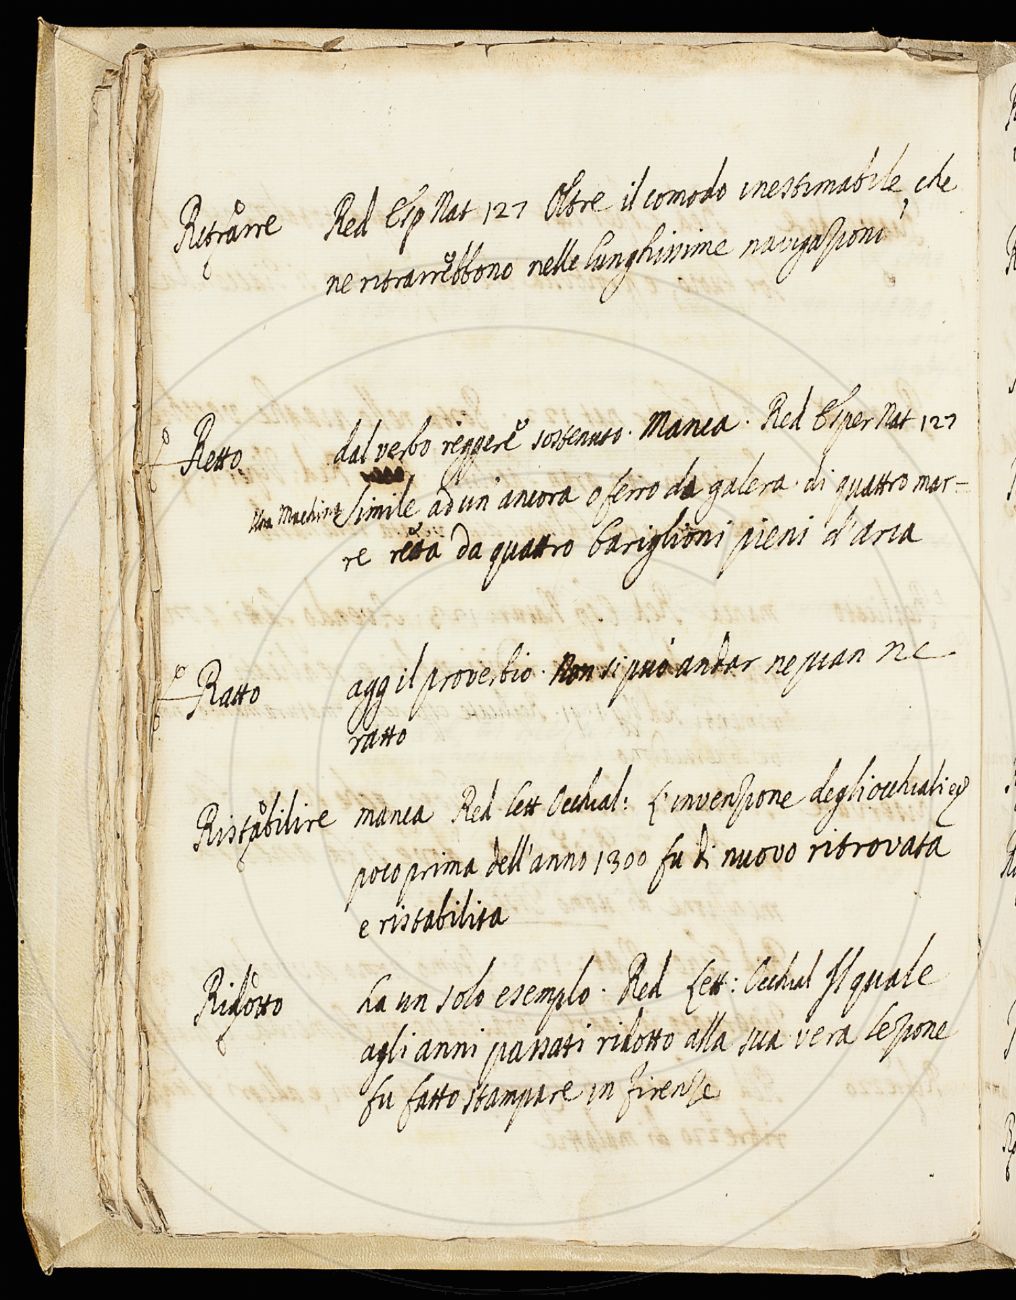 Ritrarre Red Esp Nat 127 Oltre il comodo inestimabile, che
ne ritrarrebbono nelle lunghissime navigazioni
Retto. dal verbo reggere sostenuto. Manca. Red Esper Nat 127
Una Machina Simile ad un' ancora o ferro da galera. di quattro mar=
re retta da quattro bariglioni pieni d'aria
Ratto agg il proverbio. Non si può andar ne pian ne
ratto
Ristabilire manca Red Lett Occhial: L'invenzione degli occhiali
poco prima dell'anno 1300 fu di nuovo ritrovata
e ristabilita
Ridotto ha un solo esemplo. Red Lett: Occhial Il quale
agli anni passati ridotto alla sua vera lezione
fu fatto stampare in Firenze